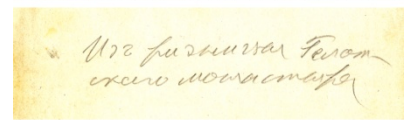 Изъ ризницы Гелат-
скаго монастыря